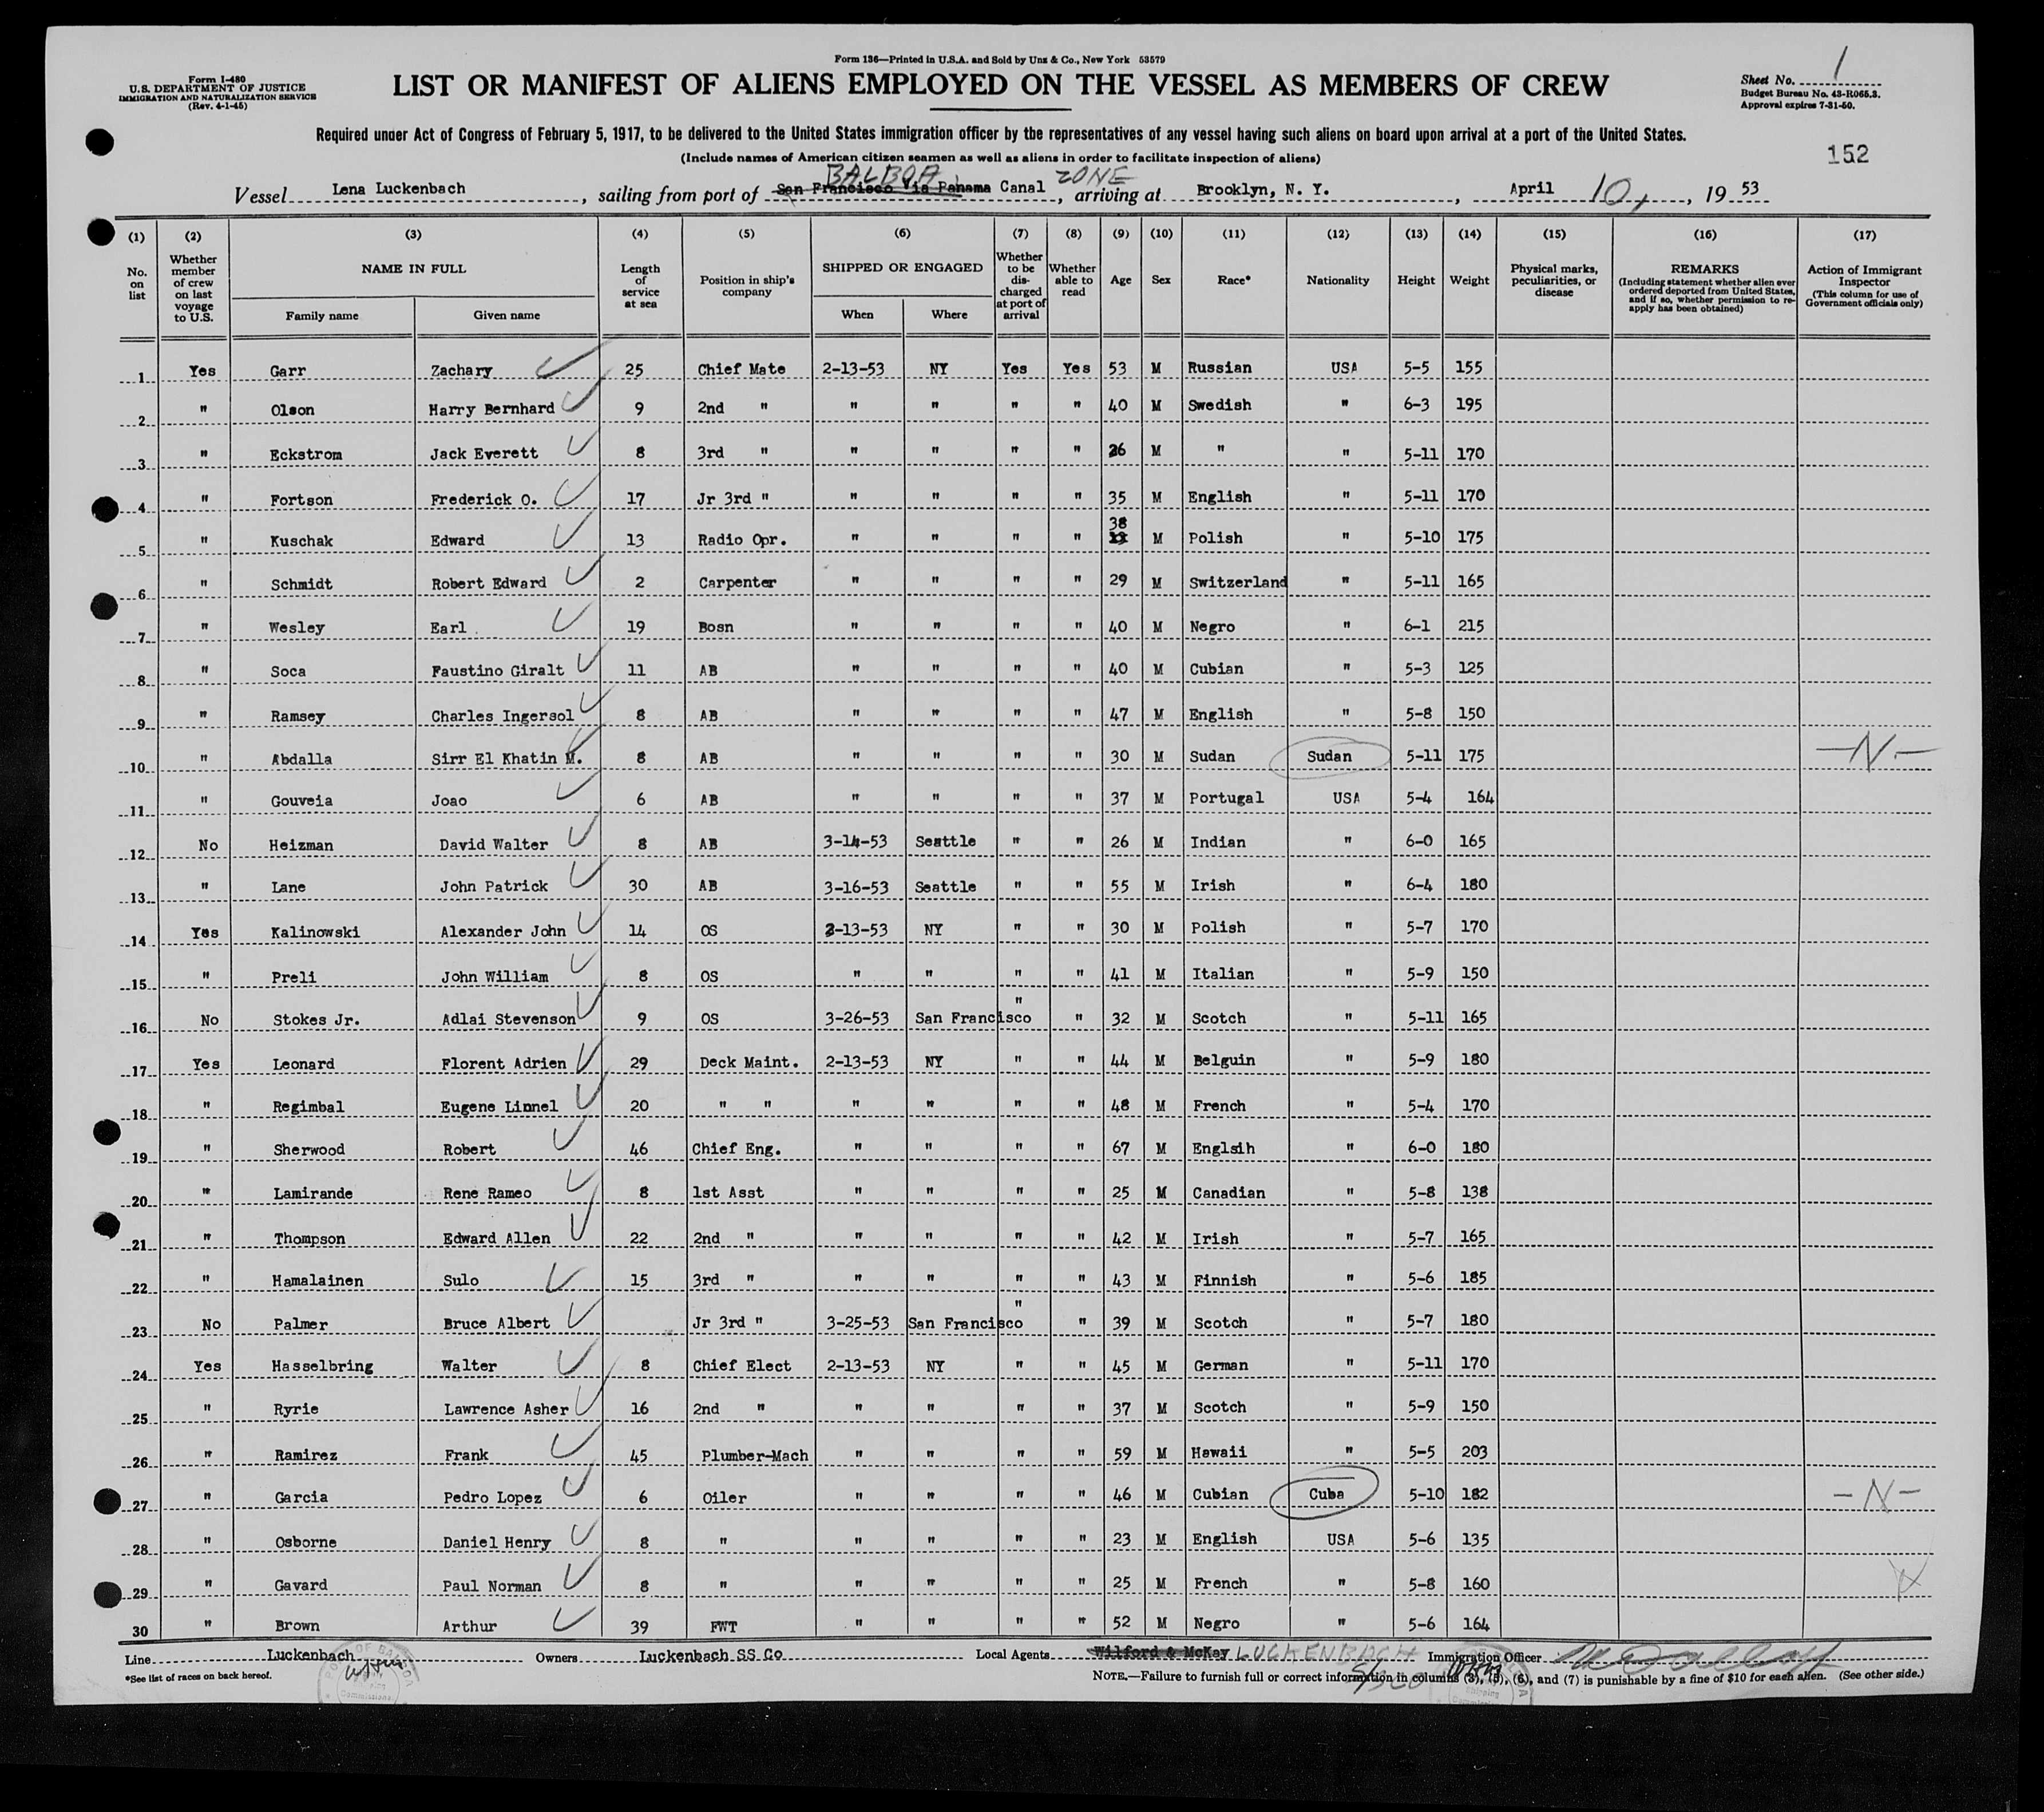 Form 136—Printed in U.S.A. and Sold by Unz & Co., New York 53579
Form I-480
U.S. DEPARTMENT OF JUSTICE
IMMIGRATION AND NATURALIZATION SERVICE
(Rev. 4-1-45)
LIST OR MANIFEST OF ALIENS EMPLOYED ON THE VESSEL AS MEMBERS OF CREW
Sheet No. 1
Budget Bureau No. 43-R065.3.
Approval expires 7-31-50.
Required under Act of Congress of February 5, 1917, to be delivered to the United States immigration officer by the representatives of any vessel having such aliens on board upon arrival at a port of the United States.
(Include names of American citizen seamen as well as aliens in order to facilitate inspection of aliens)
152
BALBOA ZONE
Vessel Lena Luckenbach, sailing from port of San Francisco Via Panama Canal, arriving at Brooklyn, N. Y., April 10, 1953
(1) (2) (3) (4) (5) (6) (7) (8) (9) (10) (11) (12) (13) (14) (15) (16) (17)
No. on list
Whether member of crew on last voyage to U.S.
NAME IN FULL
Family name Given name
Length of service at sea
Position in ship's company
SHIPPED OR ENGAGED
When Where
Whether to be discharged at port of arrival
Whether able to read
Age
Sex
Race*
Nationality
Height
Weight
Physical marks, peculiarities, or disease
REMARKS
(Including statement whether alien ever ordered deported from United States, and if so, whether permission to re-apply has been obtained)
Action of Immigrant Inspector
(This column for use of Government officials only)
1 Yes Garr Zachary 25 Chief Mate 2-13-53 NY Yes Yes 53 M Russian USA 5-5 155
2 " Olson Harry Bernhard 9 2nd " " " " " 40 M Swedish " 6-3 195
3 " Eckstrom Jack Everett 8 3rd " " " " " 26 M " " 5-11 170
4 " Fortson Frederick O. 17 Jr 3rd " " " " " 35 M English " 5-11 170
5 " Kuschak Edward 13 Radio Opr. " " " " 38 M Polish " 5-10 175
6 " Schmidt Robert Edward 2 Carpenter " " " " 29 M Switzerland " 5-11 165
7 " Wesley Earl 19 Bosn " " " " 40 M Negro " 6-1 215
8 " Soca Faustino Giralt 11 AB " " " " 40 M Cubian " 5-3 125
9 " Ramsey Charles Ingersol 8 AB " " " " 47 M English " 5-8 150
10 " Abdalla Sirr El Khatin M. 8 AB " " " " 30 M Sudan Sudan 5-11 175 —N—
11 " Gouveia Joao 6 AB " " " " 37 M Portugal USA 5-4 164
12 No Heizman David Walter 8 AB 3-14-53 Seattle " " 26 M Indian " 6-0 165
13 " Lane John Patrick 30 AB 3-16-53 Seattle " " 55 M Irish " 6-4 180
14 Yes Kalinowski Alexander John 14 OS 2-13-53 NY " " 30 M Polish " 5-7 170
15 " Preli John William 8 OS " " " " 41 M Italian " 5-9 150
16 No Stokes Jr. Adlai Stevenson 9 OS 3-26-53 San Francisco " " 32 M Scotch " 5-11 165
17 Yes Leonard Florent Adrien 29 Deck Maint. 2-13-53 NY " " 44 M Belguin " 5-9 180
18 " Regimbal Eugene Linnel 20 " " " " " " 48 M French " 5-4 170
19 " Sherwood Robert 46 Chief Eng. " " " " 67 M Englsih " 6-0 180
20 " Lamirande Rene Rameo 8 1st Asst " " " " 25 M Canadian " 5-8 138
21 " Thompson Edward Allen 22 2nd " " " " " 42 M Irish " 5-7 165
22 " Hamalainen Sulo 15 3rd " " " " " 43 M Finnish " 5-6 185
23 No Palmer Bruce Albert Jr 3rd " 3-25-53 San Francisco " " 39 M Scotch " 5-7 180
24 Yes Hasselbring Walter 8 Chief Elect 2-13-53 NY " " 45 M German " 5-11 170
25 " Ryrie Lawrence Asher 16 2nd " " " " " 37 M Scotch " 5-9 150
26 " Ramirez Frank 45 Plumber-Mach " " " " 59 M Hawaii " 5-5 203
27 " Garcia Pedro Lopez 6 Oiler " " " " 46 M Cubian Cuba 5-10 182 —N—
28 " Osborne Daniel Henry 8 " " " " " 23 M English USA 5-6 135
29 " Gavard Paul Norman 8 " " " " " 25 M French " 5-8 160
30 " Brown Arthur 39 FWT " " " " 52 M Negro " 5-6 164
Line Luckenbach Owners Luckenbach SS Co Local Agents Wilford & McKay LUCKENBACH Immigration Officer
*See list of races on back hereof.
NOTE.—Failure to furnish full or correct information in columns (3), (5), (6), and (7) is punishable by a fine of $10 for each alien. (See other side.)